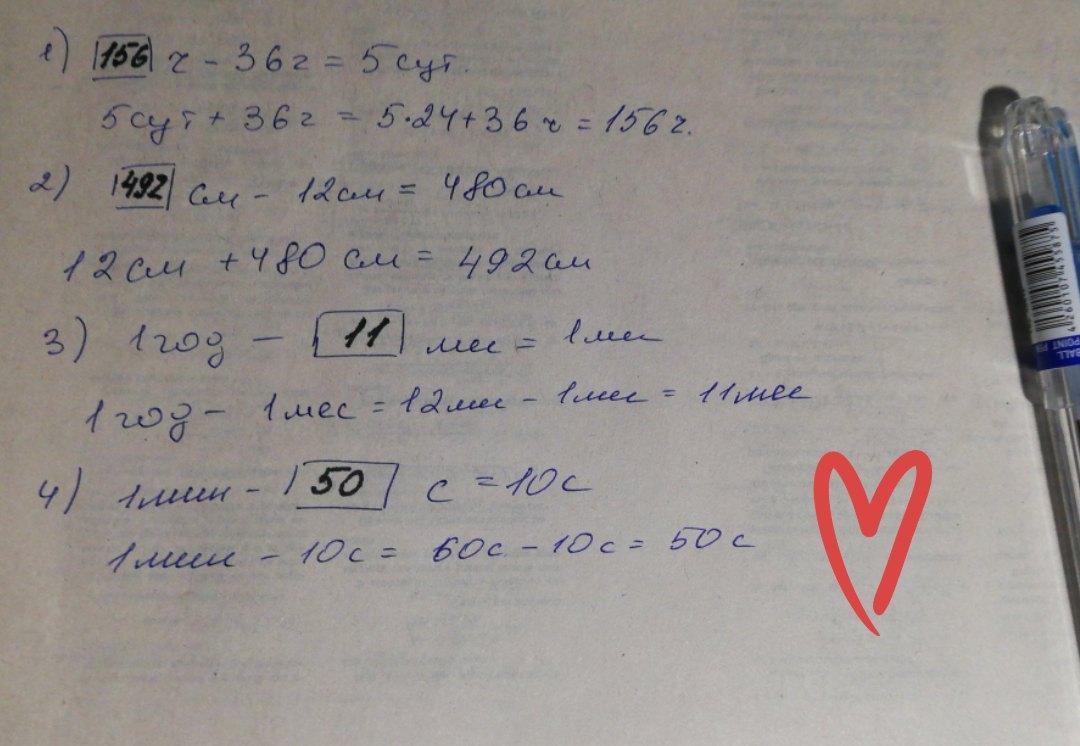 1) 156 ч - 36ч = 5 сут.
5сут + 36ч = 5·24+36 ч = 156ч.
2) 492 см - 12см = 480см
12см + 480 см = 492см
3) 1 год - 11 мес = 1мес
1 год - 1мес = 12мес - 1мес = 11мес
4) 1мин - 50 с = 10с
1мин - 10с = 60с - 10с = 50с
BALL
POINT PEN